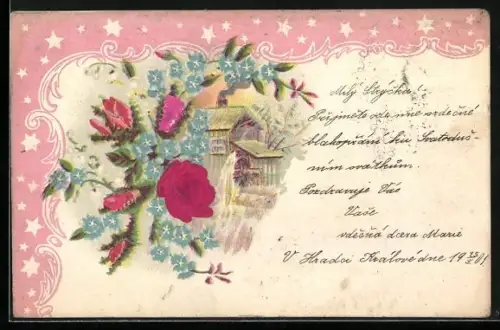 Milý Strýčku!
Přijměte ode mne srdečné
blahopřání ku Svatoduš-
ním svátkům.
Pozdravuje Vás
Vaše
vděčná dcera Marie
V Hradci Králové dne 19 25/V 01